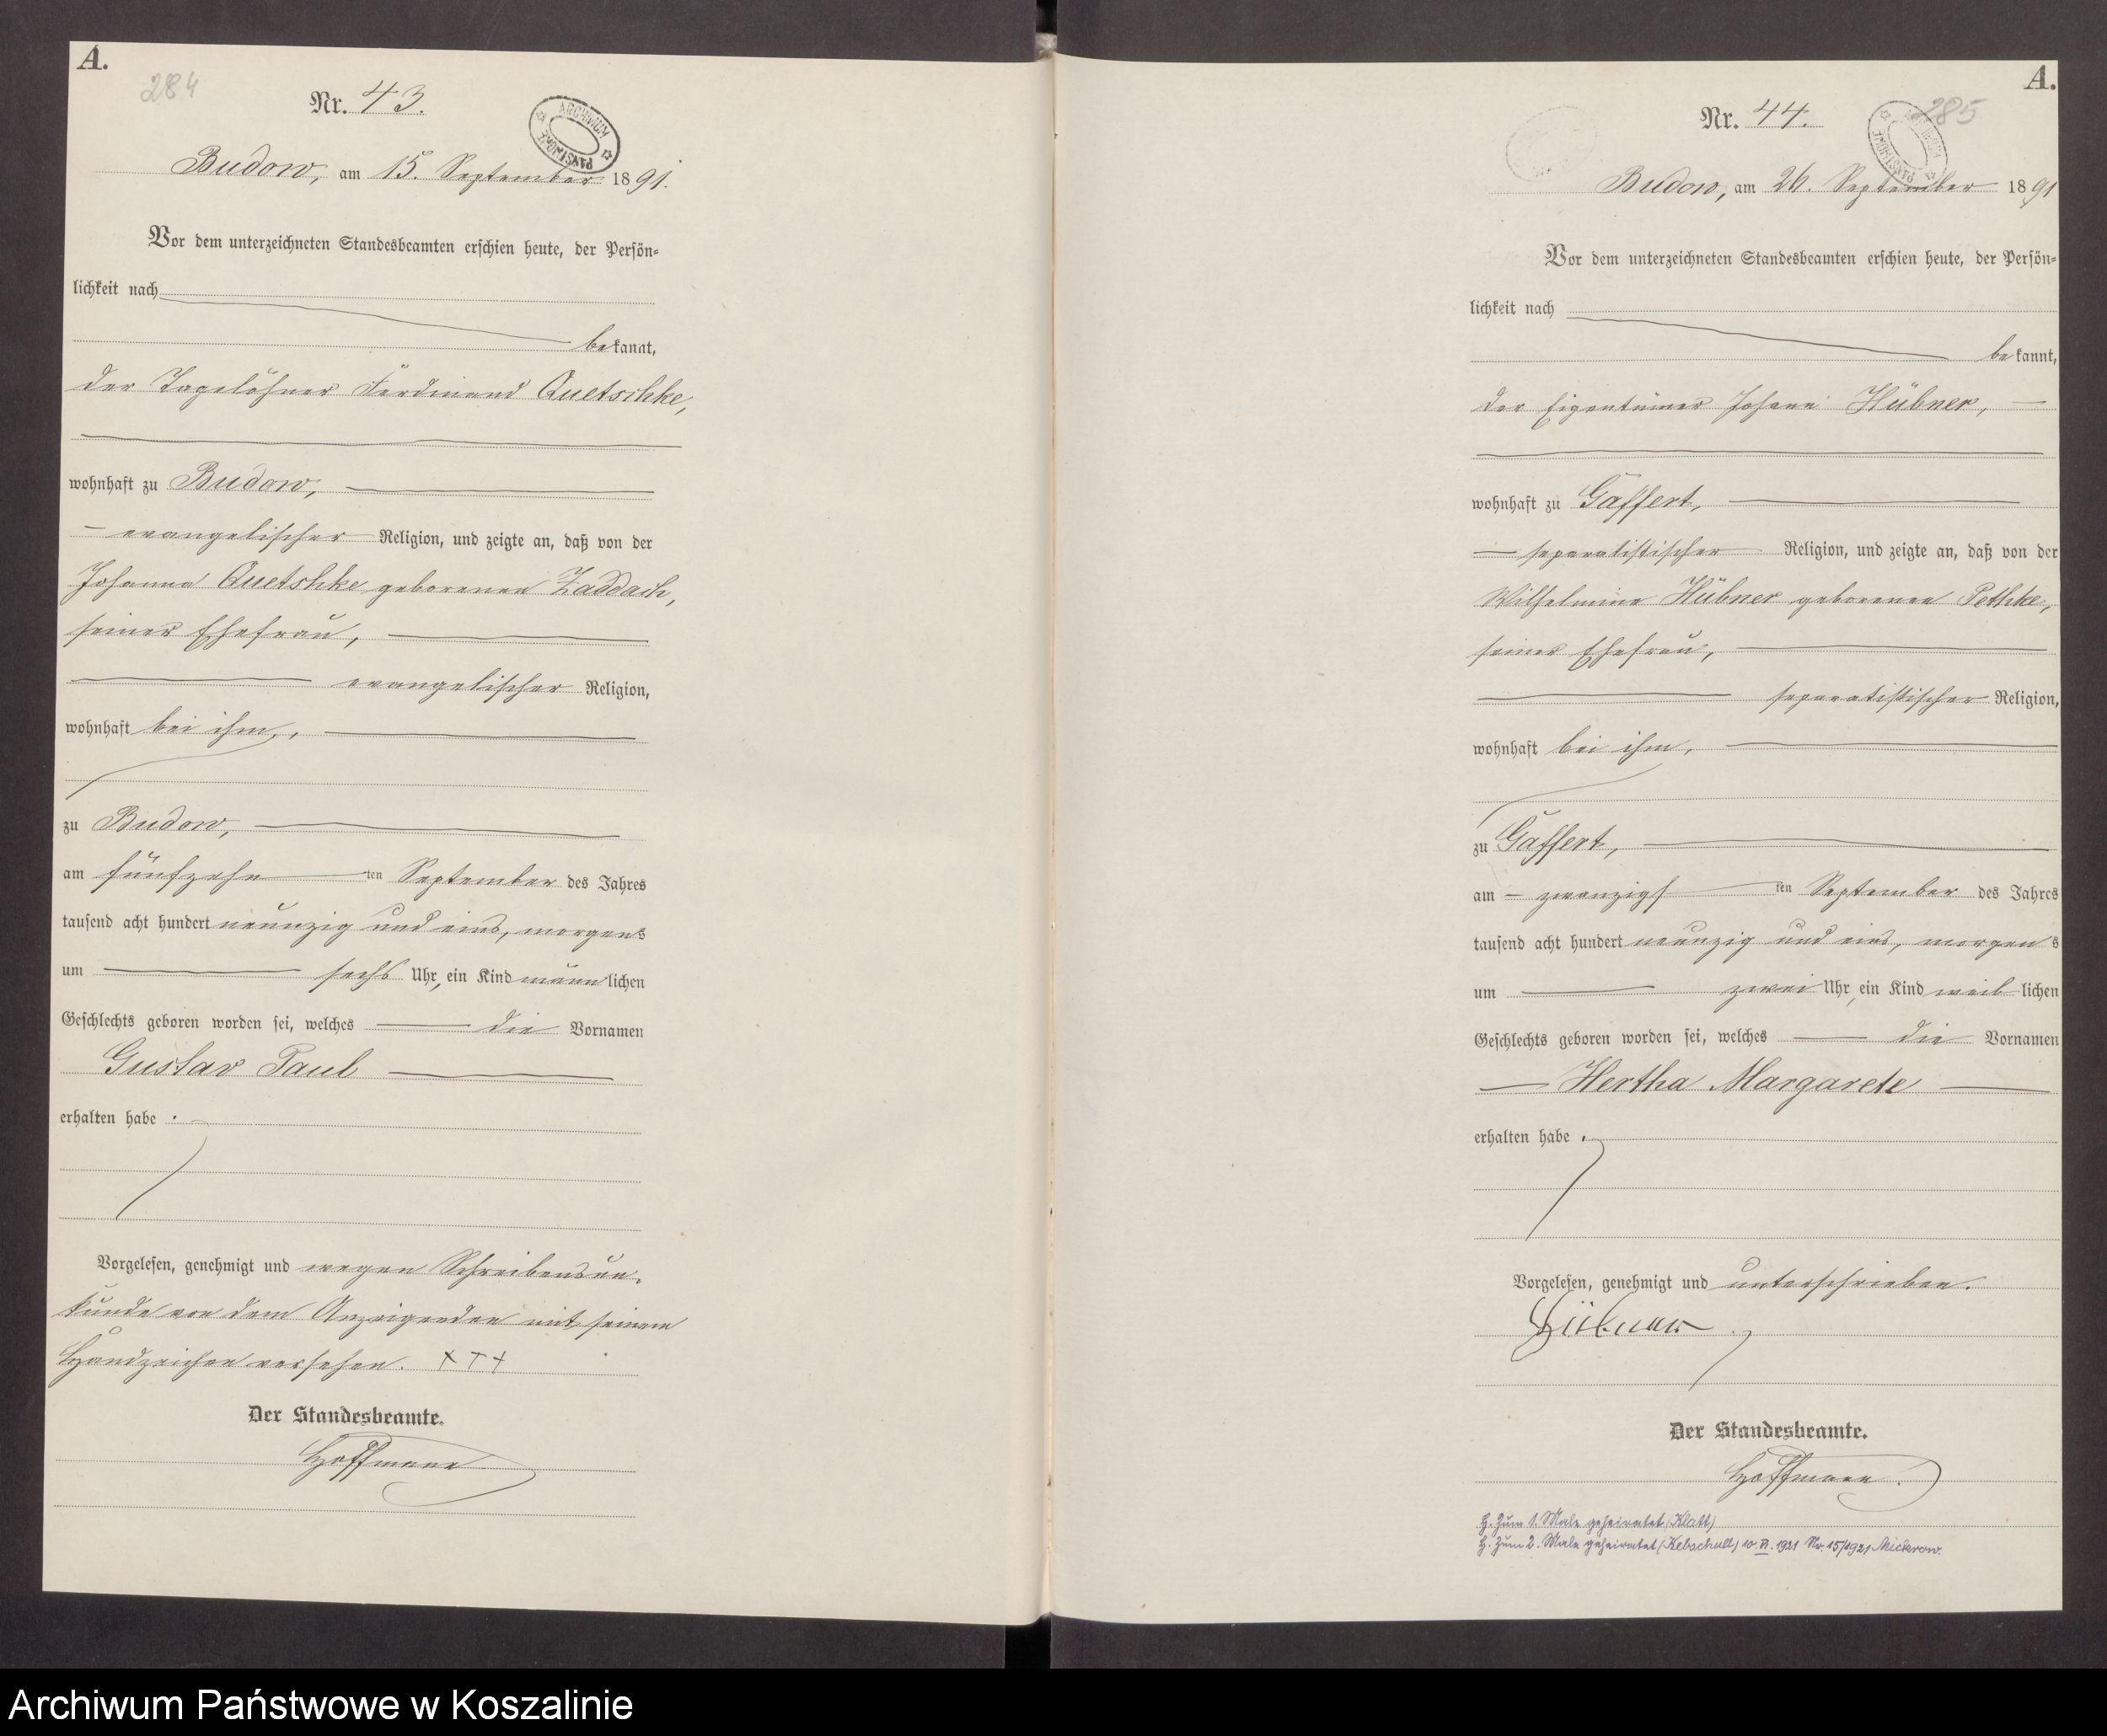 A.
284
Nr. 43.
ARCHIWUM PAŃSTWOWE
Budow, am 15. September 1891.
Vor dem unterzeichneten Standesbeamten erschien heute, der Persön-
lichkeit nach
bekannt,
der Tagelöhner Ferdinand Quetschke,
wohnhaft zu Budow,
evangelischer Religion, und zeigte an, daß von der
Johanna Quetshke geborenen Zaddach,
seiner Ehefrau,
evangelischer Religion,
wohnhaft bei ihm,
zu Budow,
am fünfzehnten September des Jahres
tausend acht hundert neunzig und eins, morgens
um sechs Uhr, ein Kind männlichen
Geschlechts geboren worden sei, welches die Vornamen
Gustav Paul
erhalten habe.
Vorgelesen, genehmigt und wegen Schreibensun-
kunde von dem Anzeigenden mit seinem
Handzeichen versehen. XXX
Der Standesbeamte.
Hoffmann
A.
285
Nr. 44.
ARCHIWUM PAŃSTWOWE
Budow, am 26. September 1891
Vor dem unterzeichneten Standesbeamten erschien heute, der Persön-
lichkeit nach
bekannt,
der Eigentümer Johann Hübner,
wohnhaft zu Gaffert,
separatistischer Religion, und zeigte an, daß von der
Wilhelmine Hübner geborenen Pethke,
seiner Ehefrau,
separatistischer Religion,
wohnhaft bei ihm,
zu Gaffert,
am zwanzigsten September des Jahres
tausend acht hundert neunzig und eins, morgens
um zwei Uhr, ein Kind weiblichen
Geschlechts geboren worden sei, welches die Vornamen
Hertha Margarete
erhalten habe.
Vorgelesen, genehmigt und unterschrieben.
Hübner
Der Standesbeamte.
Hoffmann.
H. zum 1. Male geheiratet (Klatt)
H. zum 2. Male geheiratet (Kebschull) 10. VI. 1921 Nr. 15/1921 Mickrow.
Archiwum Państwowe w Koszalinie